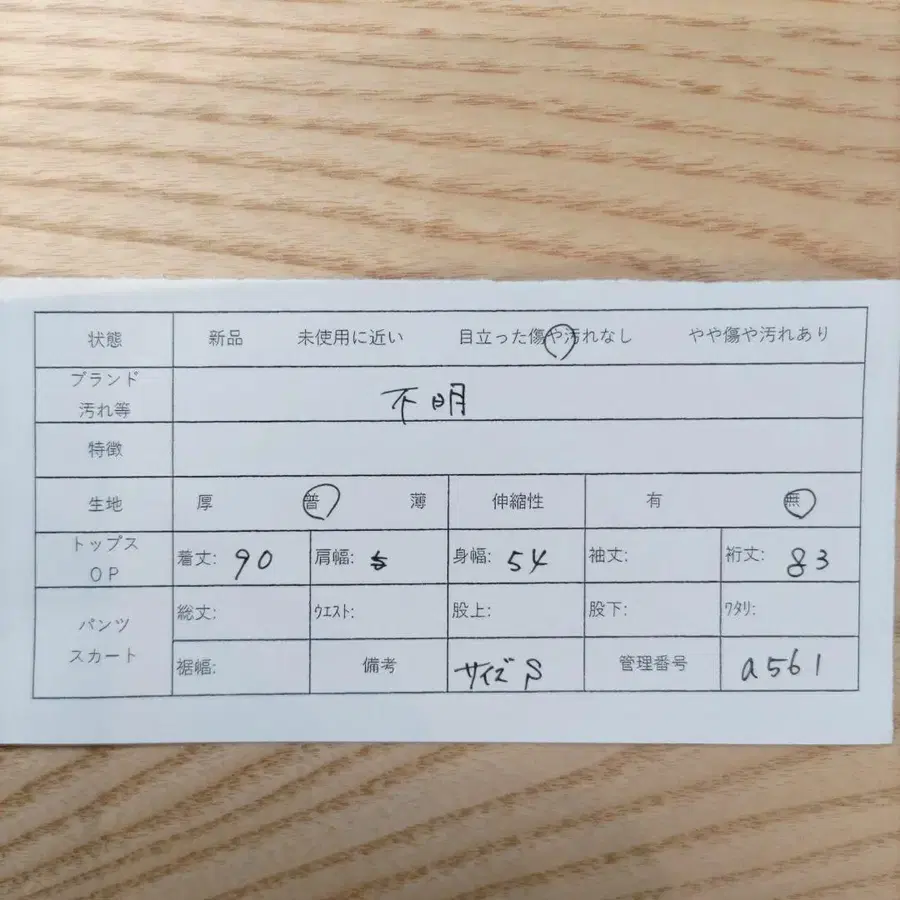 状態 新品 未使用に近い 目立った傷や汚れなし やや傷や汚れあり
ブランド
汚れ等
不明
特徴
生地 厚 普 薄 伸縮性 有 無
トップス
OP
着丈: 90 肩幅: 身幅: 54 袖丈: 裄丈: 83
パンツ
スカート
総丈: ウエスト: 股上: 股下: ワタリ:
裾幅: 備考 サイズS 管理番号 a561